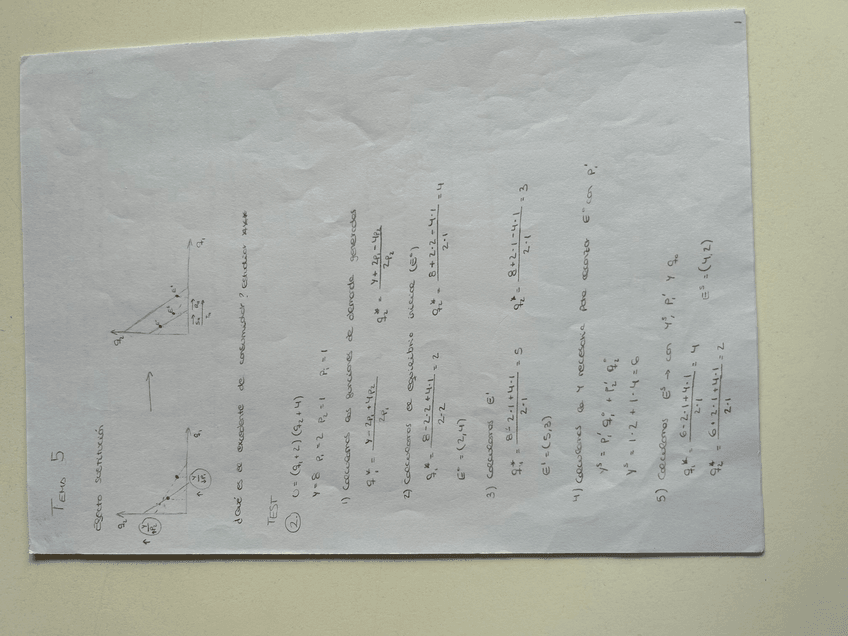 TEMA 5
efecto sustitución
q₂ q₁ Y/P₂ Y/P₁
q₂ q₁ E'
¿Qué es el excedente del consumidor? estudiar ***
TEST
2. U = (q₁+2)(q₂+4)
Y = 8 P₁ = 2 P₂ = 1 P₁' = 1
1) Calculamos las funciones de demanda generales
q₁* = (Y - 2P₁ + 4P₂) / 2P₁ q₂* = (Y + 2P₁ - 4P₂) / 2P₂
2) Calculamos el equilibrio inicial (E⁰)
q₁* = (8 - 2·2 + 4·1) / 2·2 = 2 q₂* = (8 + 2·2 - 4·1) / 2·1 = 4
E⁰ = (2,4)
3) Calculamos E'
q₁* = (8 - 2·1 + 4·1) / 2·1 = 5 q₂* = (8 + 2·1 - 4·1) / 2·1 = 3
E' = (5,3)
4) Calculamos la Y necesaria para alcanzar E⁰ con P₁'
Yˢ = P₁' q₁⁰ + P₂⁰ q₂⁰
Yˢ = 1·2 + 1·4 = 6
5) Calculamos Eˢ → con Yˢ, P₁' y
q₁* = (6 - 2·1 + 4·1) / 2·1 = 4
q₂* = (6 + 2·1 + 4·1) / 2·1 = 2 Eˢ = (4,2)
1